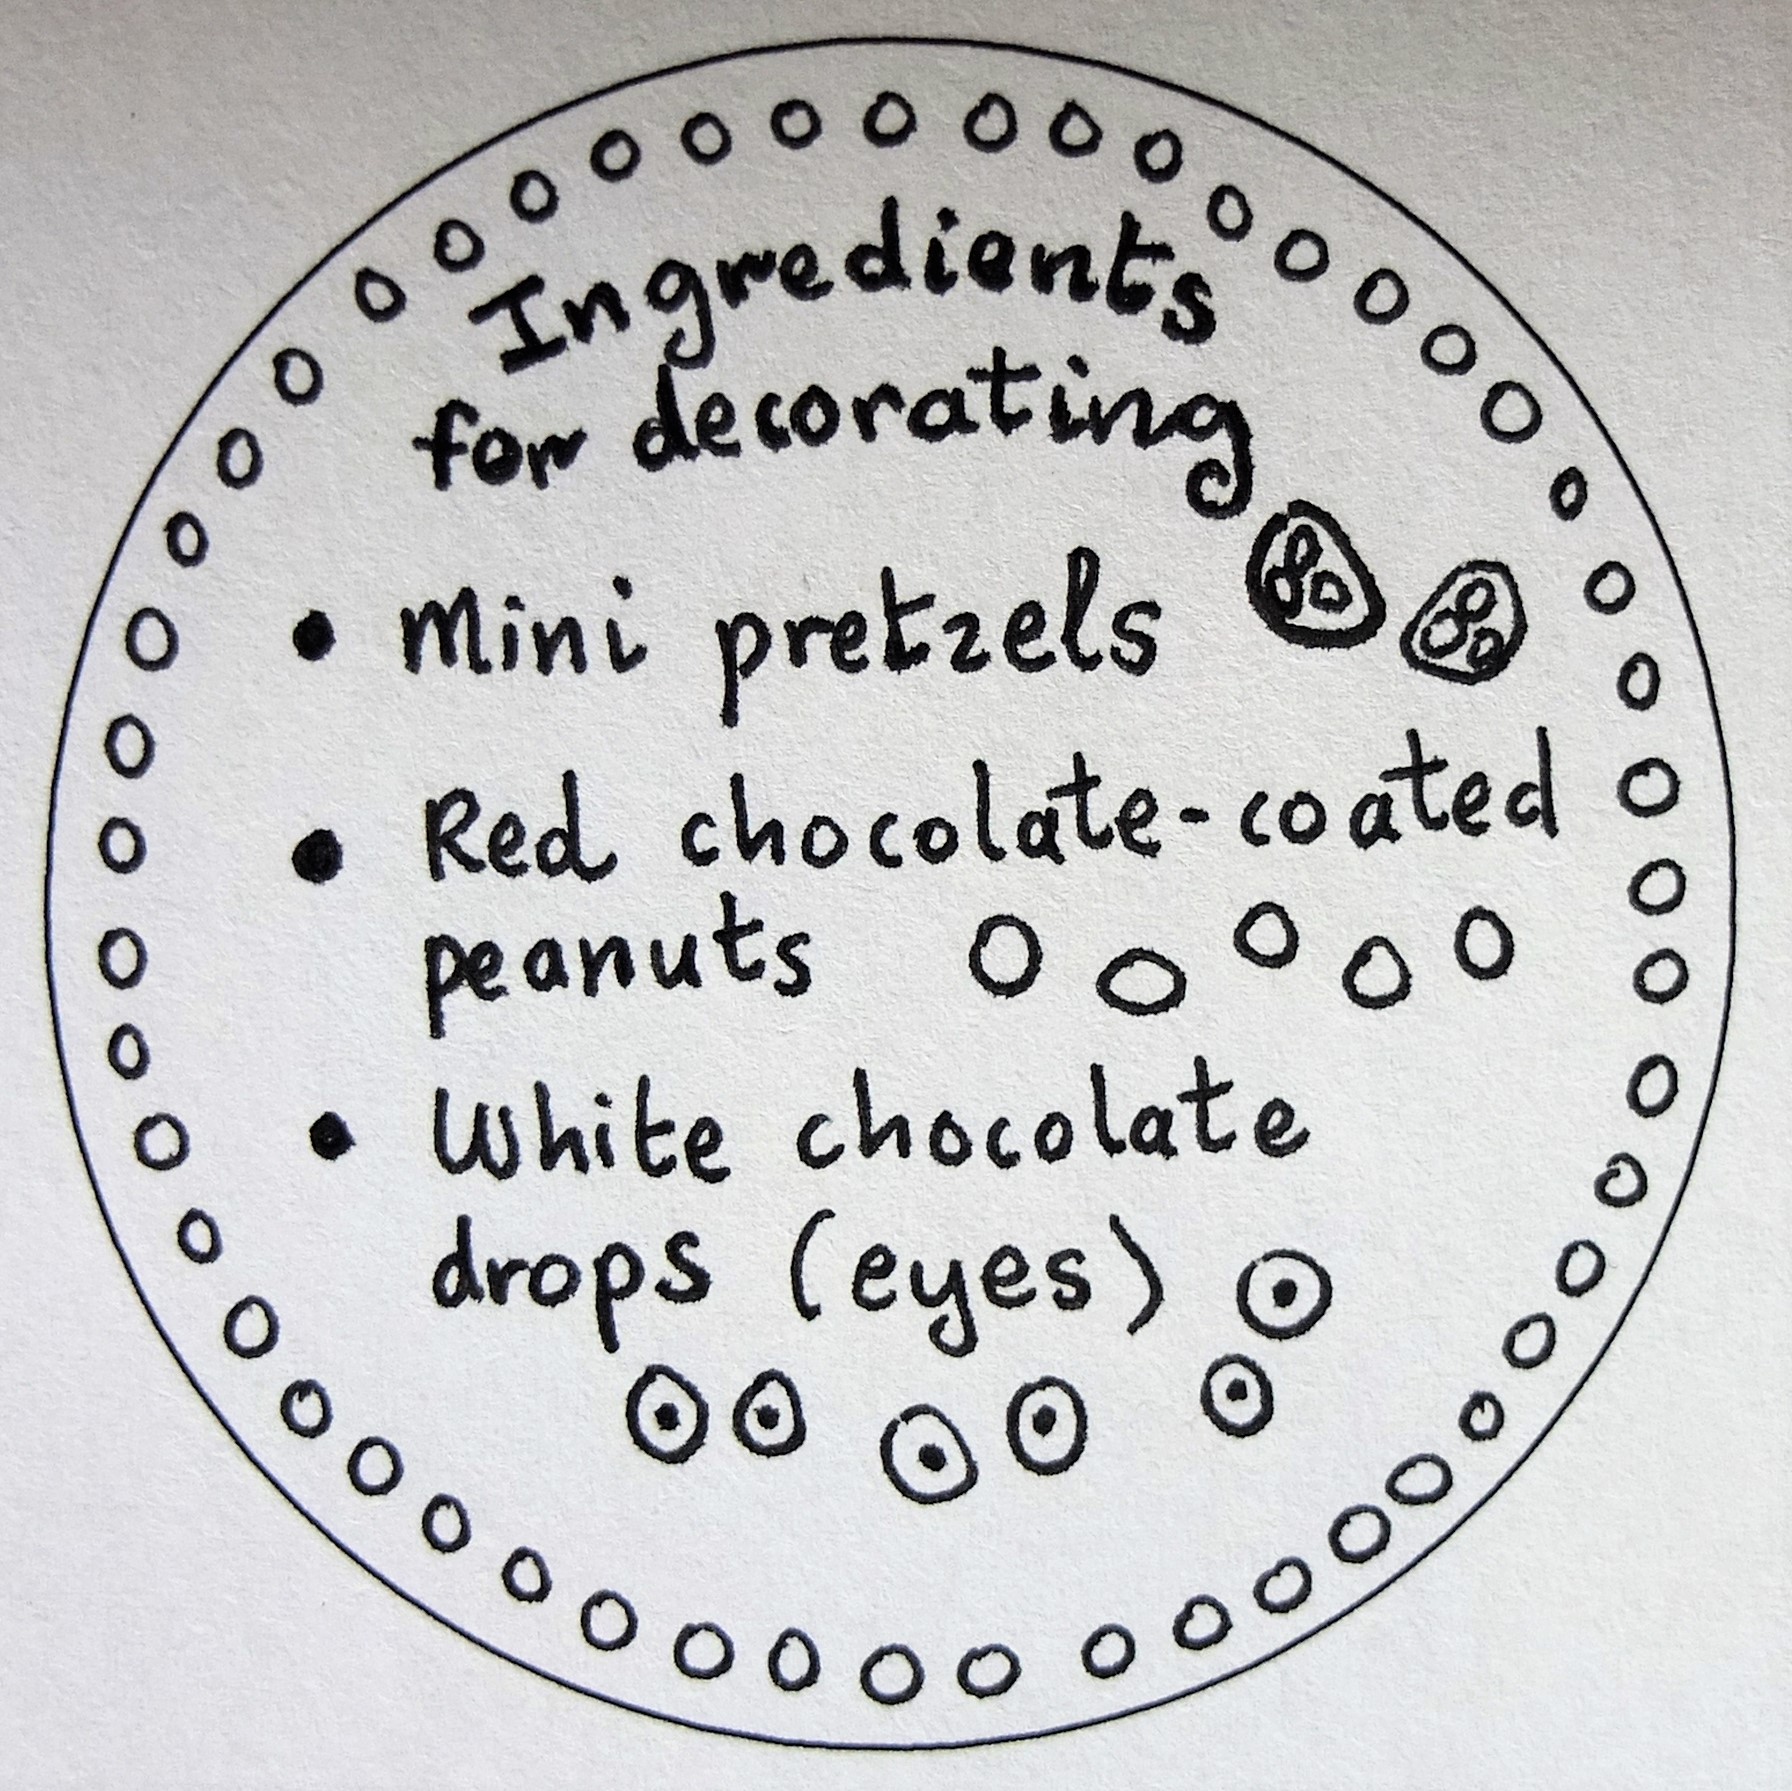 Ingredients
for decorating
• Mini pretzels
• Red chocolate-coated
peanuts
• White chocolate
drops (eyes)